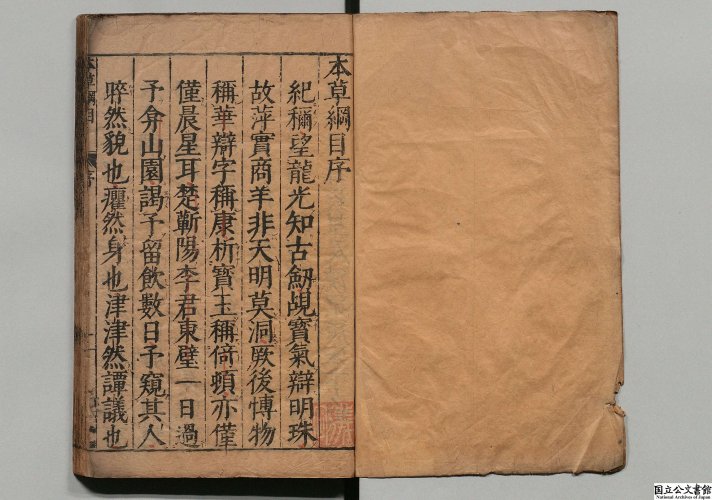 本草綱目序
紀稱望龍光知古劒覘寶氣辯明珠
故萍實商羊非天明莫洞厥後愽物
稱華辯字稱康析寶玉稱倚頓亦僅
僅晨星耳楚蘄陽李君東壁一日過
予弇山園謁予留飲數日予窺其人
睟然貌也癯然身也津津然譚議也
本草綱目
序
国立公文書館
National Archives of Japan